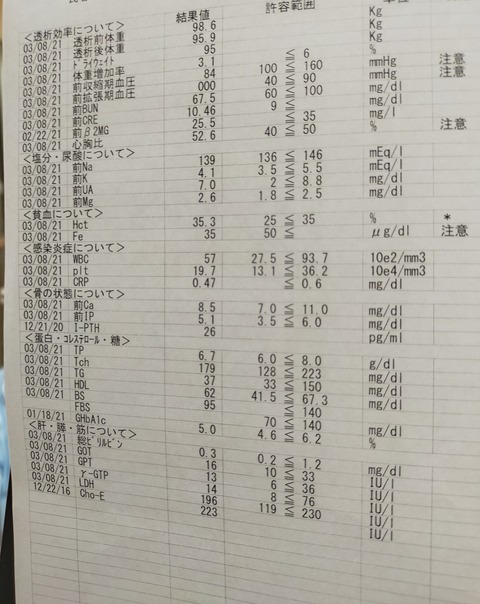 結果値 許容範囲
<透析効率について>
03/08/21 透析前体重 98.6 Kg
03/08/21 透析後体重 95.9 Kg
03/08/21 ドライウェイト 95 Kg
03/08/21 体重増加率 3.1 ≦ 6 %
03/08/21 前収縮期血圧 84 100 ≦ 160 mmHg 注意
03/08/21 前拡張期血圧 000 40 ≦ 90 mmHg 注意
03/08/21 前BUN 67.5 60 ≦ 100 mg/dl
03/08/21 前CRE 10.46 9 ≦ mg/dl
02/22/21 前β2MG 25.5 ≦ 35 mg/l
03/08/21 心胸比 52.6 40 ≦ 50 % 注意
<塩分・尿酸について>
03/08/21 前Na 139 136 ≦ 146 mEq/l
03/08/21 前K 4.1 3.5 ≦ 5.5 mEq/l
03/08/21 前UA 7.0 2 ≦ 8.8 mg/dl
03/08/21 前Mg 2.6 1.8 ≦ 2.5 mg/dl
<貧血について>
03/08/21 Hct 35.3 25 ≦ 35 % *
03/08/21 Fe 35 50 ≦ μg/dl 注意
<感染炎症について>
03/08/21 WBC 57 27.5 ≦ 93.7 10e2/mm3
03/08/21 plt 19.7 13.1 ≦ 36.2 10e4/mm3
03/08/21 CRP 0.47 ≦ 0.6 mg/dl
<骨の状態について>
03/08/21 前Ca 8.5 7.0 ≦ 11.0 mg/dl
03/08/21 前IP 5.1 3.5 ≦ 6.0 mg/dl
12/21/20 I-PTH 26 pg/ml
<蛋白・コレステロール・糖>
03/08/21 TP 6.7 6.0 ≦ 8.0 g/dl
03/08/21 Tch 179 128 ≦ 223 mg/dl
03/08/21 TG 37 33 ≦ 150 mg/dl
03/08/21 HDL 62 41.5 ≦ 67.3 mg/dl
03/08/21 BS 95 ≦ 140
FBS 70 ≦ 140 mg/dl
01/18/21 GHbA1c 5.0 4.6 ≦ 6.2 %
<肝・膵・筋について>
03/08/21 総ビリルビン 0.3 0.2 ≦ 1.2 mg/dl
03/08/21 GOT 16 10 ≦ 33 IU/l
03/08/21 GPT 13 6 ≦ 36 IU/l
03/08/21 γ-GTP 14 8 ≦ 76 IU/l
03/08/21 LDH 196 119 ≦ 230 IU/l
12/22/16 Cho-E 223 IU/l